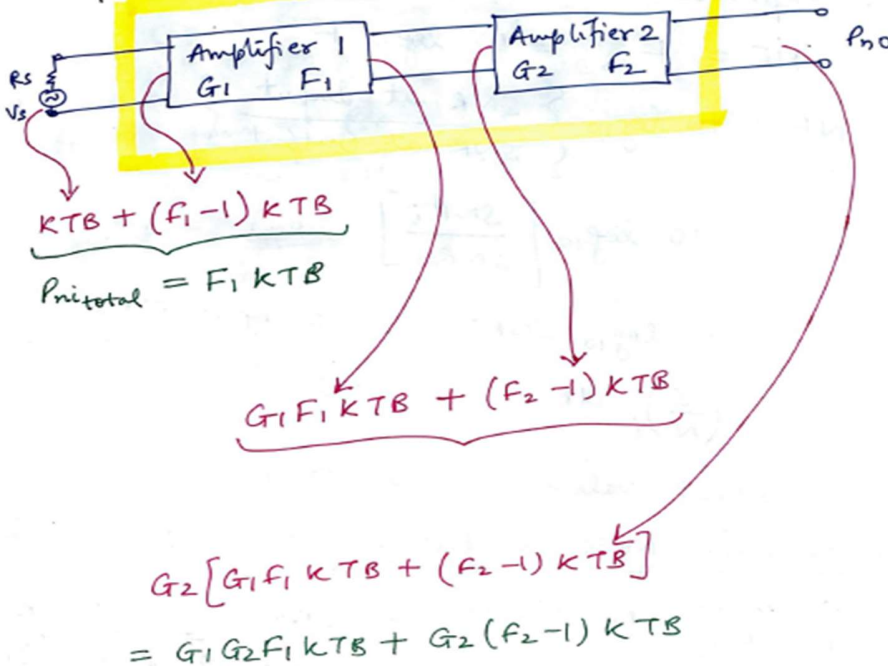 Amplifier 1
G1 F1
Amplifier 2
G2 F2
Pno
Rs
Vs
KTB + (f1-1) KTB
Pni total = F1 KTB
G1F1 KTB + (F2-1) KTB
G2[G1f1 KTB + (F2-1) KTB]
= G1G2F1KTB + G2(f2-1) KTB